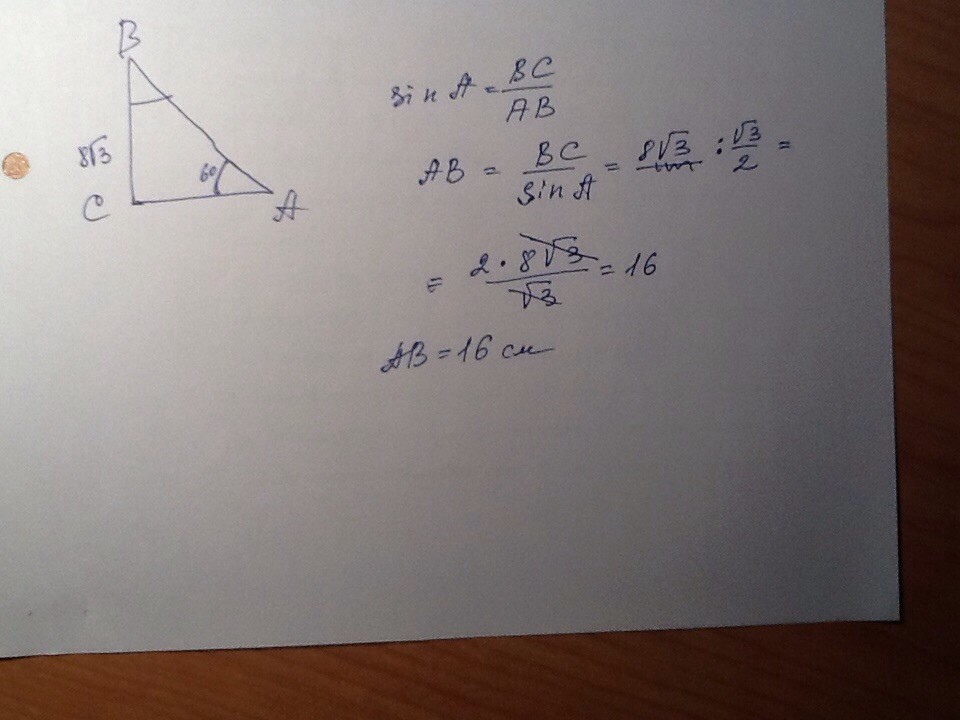 B
8√3
C
60
A
sin A = BC/AB
AB = BC/sin A = 8√3 : √3/2 =
= 2 · 8√3/√3 = 16
AB = 16 см